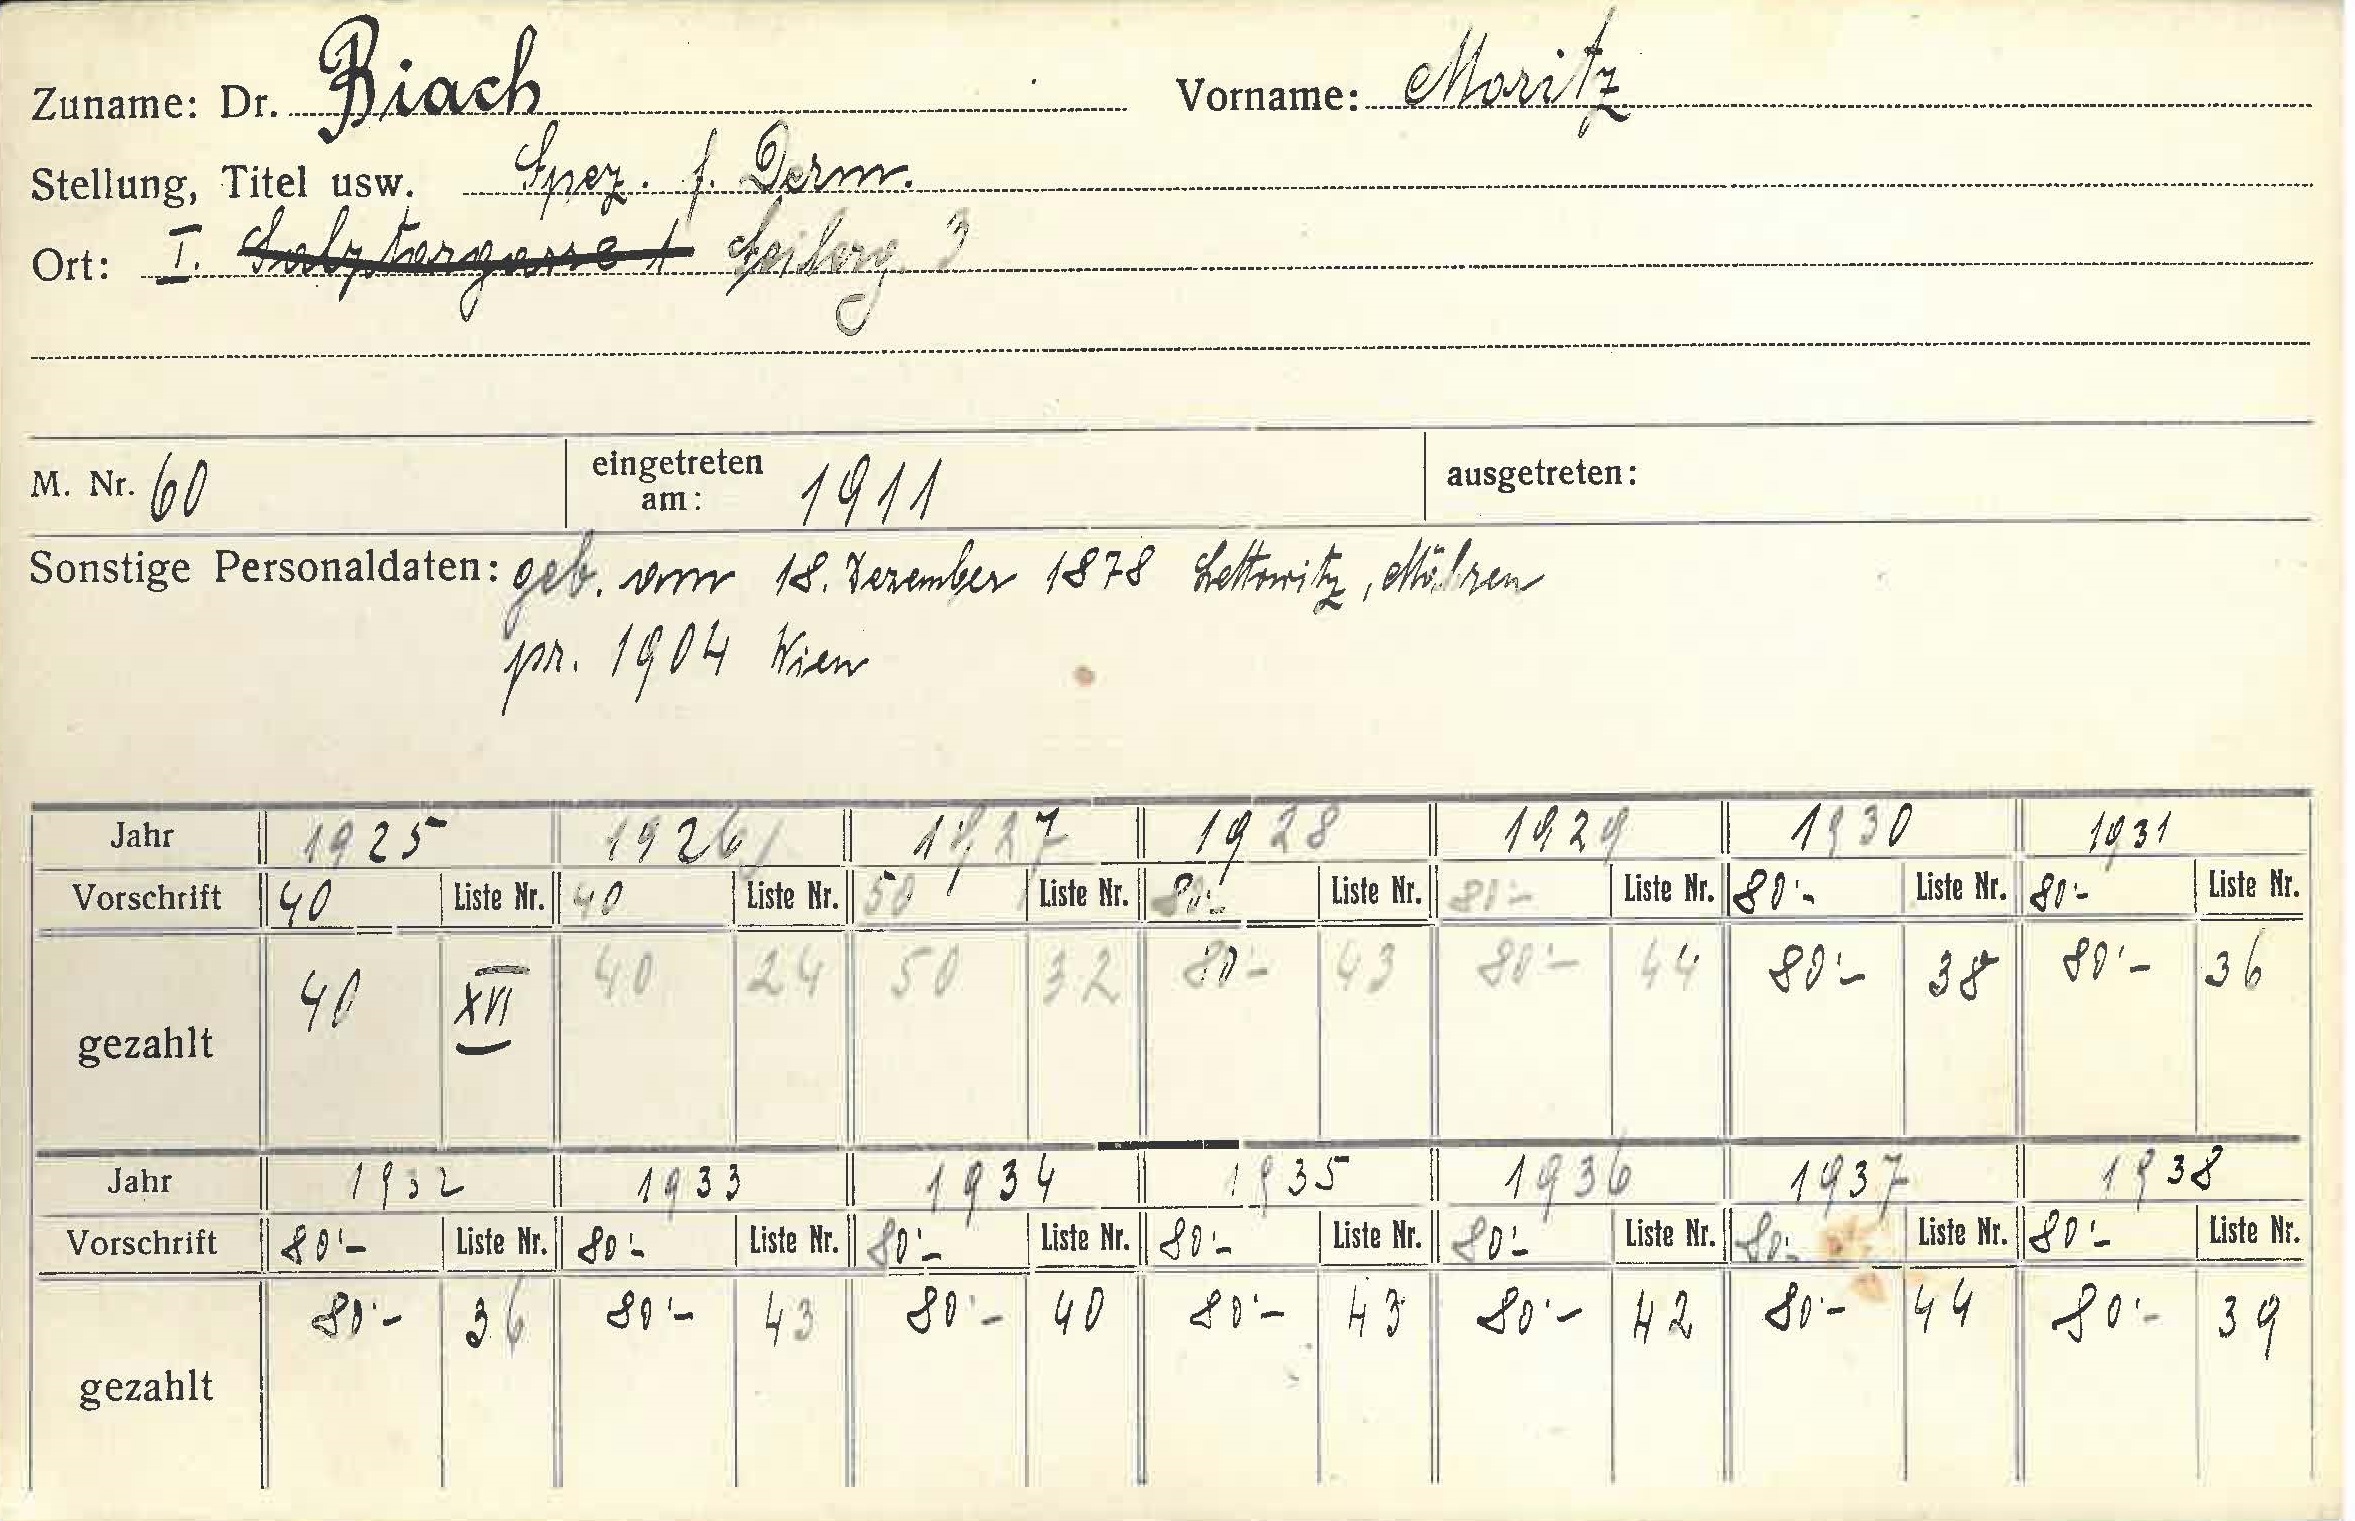 Zuname: Dr. Biach Vorname: Moritz
Stellung, Titel usw. Spez. f. Derm.
Ort: I. Salztorgasse 1 3
M. Nr. 60 eingetreten am: 1911 ausgetreten:
Sonstige Personaldaten: geb. am 18. Dezember 1878 Lettowitz, Mähren
pr. 1904 Wien
Jahr 1925 1926 1927 1928 1929 1930 1931
Vorschrift 40 Liste Nr. 40 Liste Nr. 50 Liste Nr. 80'- Liste Nr. 80'- Liste Nr. 80'- Liste Nr. 80'- Liste Nr.
gezahlt 40 XVI 40 24 50 32 80'- 43 80'- 44 80'- 38 80'- 36
Jahr 1932 1933 1934 1935 1936 1937 1938
Vorschrift 80'- Liste Nr. 80'- Liste Nr. 80'- Liste Nr. 80'- Liste Nr. 80'- Liste Nr. 80'- Liste Nr. 80'- Liste Nr.
gezahlt 80'- 36 80'- 43 80'- 40 80'- 43 80'- 42 80'- 44 80'- 39